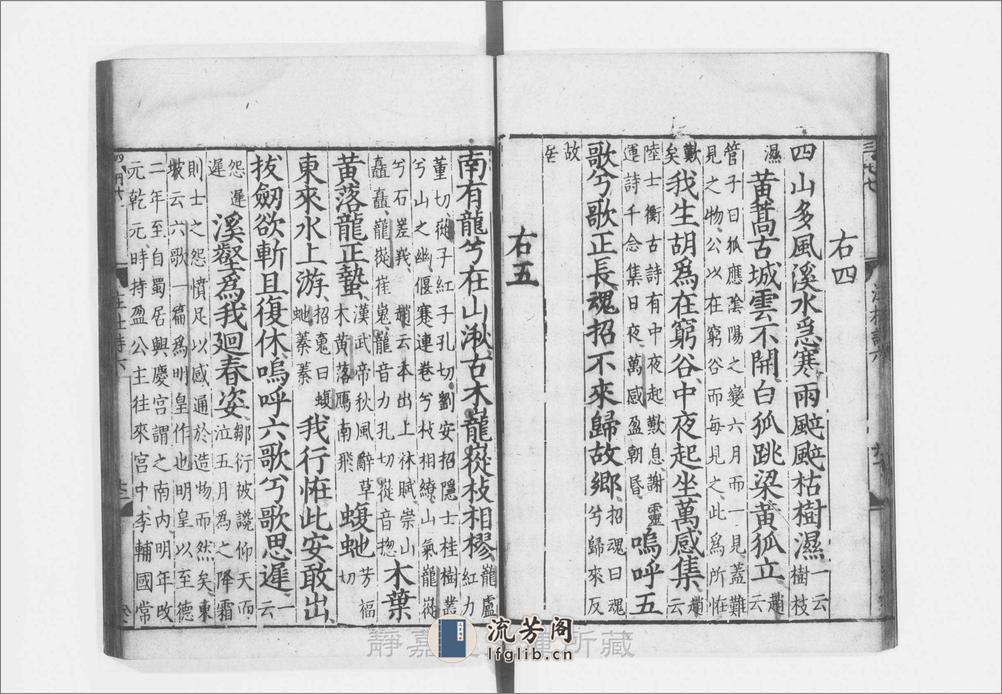 右四
四山多風溪水急寒雨颯颯枯樹濕一云樹枝
濕黃蒿古城雲不開白狐跳梁黃狐立趙
管子曰狐應陰陽之變六月而一見蓋難
見之物公以在窮谷而每見之此為所恠
歎矣我生胡為在窮谷中夜起坐萬感集趙云
陸士衡古詩有中夜起歎息謝靈
運詩千念集日夜萬感盈朝昏嗚呼五
歌兮歌正長魂招不來歸故鄉招魂曰魂兮歸來反
故
右五
南有龍兮在山湫古木巃嵷枝相樛巃盧紅力
董切嵷子紅子孔切劉安招隱士桂樹叢
兮山之幽偃蹇連卷兮枝相繚山氣巃嵷
兮石嵳峩趙云本出上林賦崇山
矗矗巃嵷崔嵬巃音力孔切嵷音揔木葉
黃落龍正蟄漢武帝秋風辭草木黃落鴈南飛蝮虵芳福切
東來水上游招䰟曰蝮虵蓁蓁我行恠此安敢出
拔劒欲斬且復休嗚呼六歌兮歌思遲一云
怨遲溪壑為我廻春姿鄒衍被讒仰天而泣五月為之降霜
則士之怨憤足以感通於造物而然矣東
坡云六歌一篇為明皇作也明皇以至德
二年至自蜀居興慶宮謂之南內明年改
元乾元時持盈公主往來宮中李輔國常
靜嘉
所藏
流芳阁
lfglib.cn